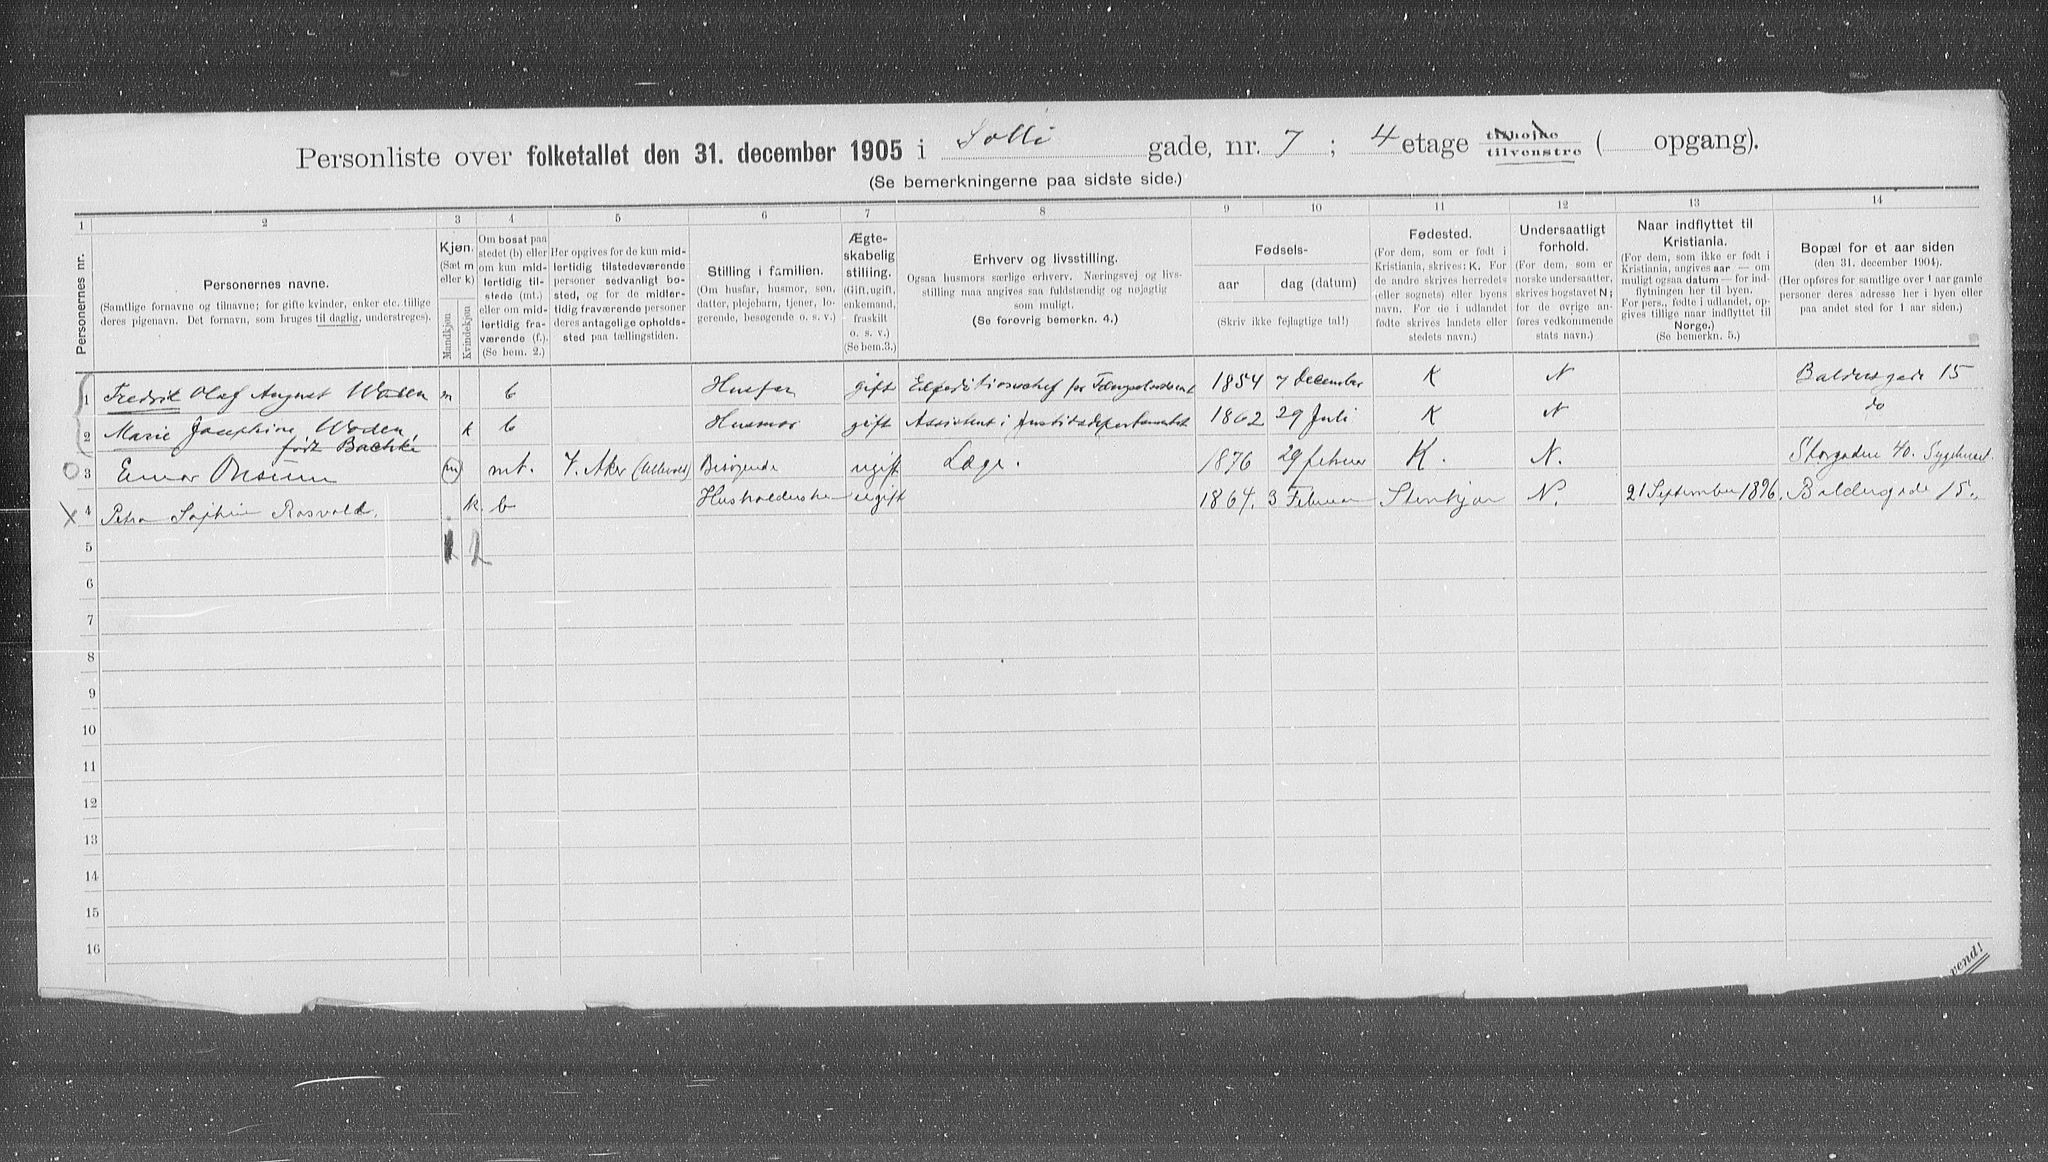 Personliste over folketallet den 31. december 1905 i Solli gade, nr. 7 ; 4 etage tilhøire tilvenstre ( opgang).
(Se bemerkningerne paa sidste side.)
1 2 3 4 5 6 7 8 9 10 11 12 13 14
Personernes nr.
Personernes navne.
(Samtlige fornavne og tilnavne; for gifte kvinder, enker etc. tillige
deres pigenavn. Det fornavn, som bruges til daglig, understreges).
Kjøn.
(Sæt m
eller k)
Mandkjøn
Kvindekjøn
Om bosat paa
stedet (b) eller
om kun mid-
lertidig til-
stede (mt.)
eller om mid-
lertidig fra-
værende (f.).
(Se bem. 2.)
Her opgives for de kun mid-
lertidig tilstedeværende
personer sedvanligt bo-
sted, og for de midler-
tidig fraværende personer
deres antagelige opholds-
sted paa tællingstiden.
Stilling i familien.
(Om husfar, husmor, søn,
datter, plejebarn, tjener, lo-
gerende, besøgende o. s. v.)
Ægte-
skabelig
stilling.
(Gift, ugift,
enkemand,
fraskilt
o. s. v.)
(Se bem.3.)
Erhverv og livsstilling.
Ogsaa husmors særlige erhverv. Næringsvej og livs-
stilling maa angives saa fuldstændig og nøjagtig
som muligt.
(Se forøvrig bemerkn. 4.)
Fødsels-
aar dag (datum)
(Skriv ikke fejlagtige tal!)
Fødested.
(For dem, som er født i
Kristiania, skrives: K. For
de andre skrives herredets
(eller sognets) eller byens
navn. For de i udlandet
fødte skrives landets eller
stedets navn.)
Undersaatligt
forhold.
(For dem, som er
norske undersaatter,
skrives bogstavet N;
for de øvrige an-
føres vedkommende
stats navn.)
Naar indflyttet til
Kristiania.
(For dem, som ikke er født i
Kristiania, angives aar — om
muligt ogsaa datum — for ind-
flytningen her til byen.
For pers., fødte i udlandet, op-
gives tillige naar indflyttet til
Norge.)
(Se bemerkn. 5.)
Bopæl for et aar siden
(den 31. december 1904).
(Her opføres for samtlige over 1 aar gamle
personer deres adresse her i byen eller
paa andet sted for 1 aar siden.)
1 Fredrik Olaf August m b Husfar gift Expeditionschef 1854 7 December K N Baldersgade 15
2 Marie Josephine k b Husmor gift Assistent i Justitsdepartementet 1862 29 Juli K N do
født Bachke
3 Einar Onsum m mt. V. Aker (Ullevold) Besøgende ugift Læge. 1876 29 februar K. N. Storgaden 40. Sygehuset.
4 Petra Sophie Rosvold. k. b Husholderske ugift 1864. 3 Februar Stenkjær N. 21 September 1896. Baldersgade 15.
5 1 2
6
7
8
9
10
11
12
13
14
15
16
vend!